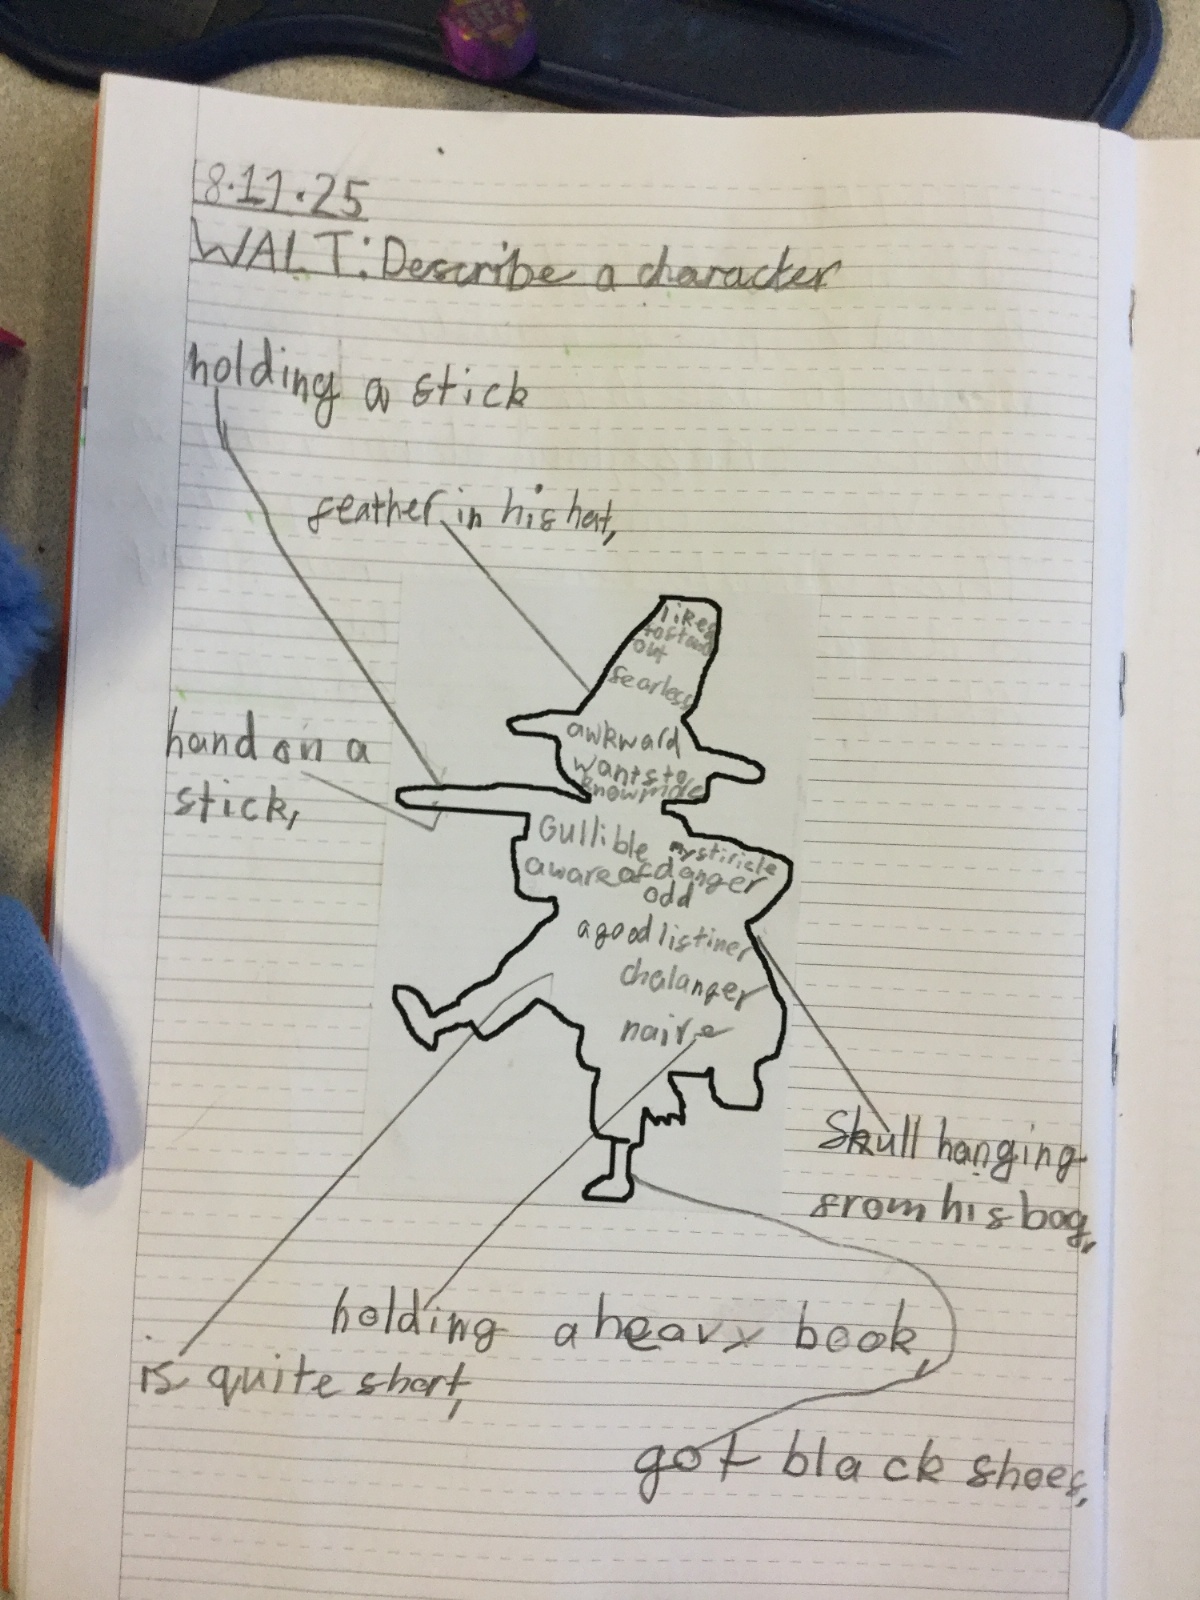 8.11.25
WALT: Describe a character
holding a stick
feather in his hat,
likes
to stand
out
fearless
awkward
wants to
know more
hand on a
stick,
Gullible mystiricle
aware of danger
odd
a good listiner
chalanger
naive
Skull hanging
from his bag,
holding a heavy book,
is quite short,
got black shoes,